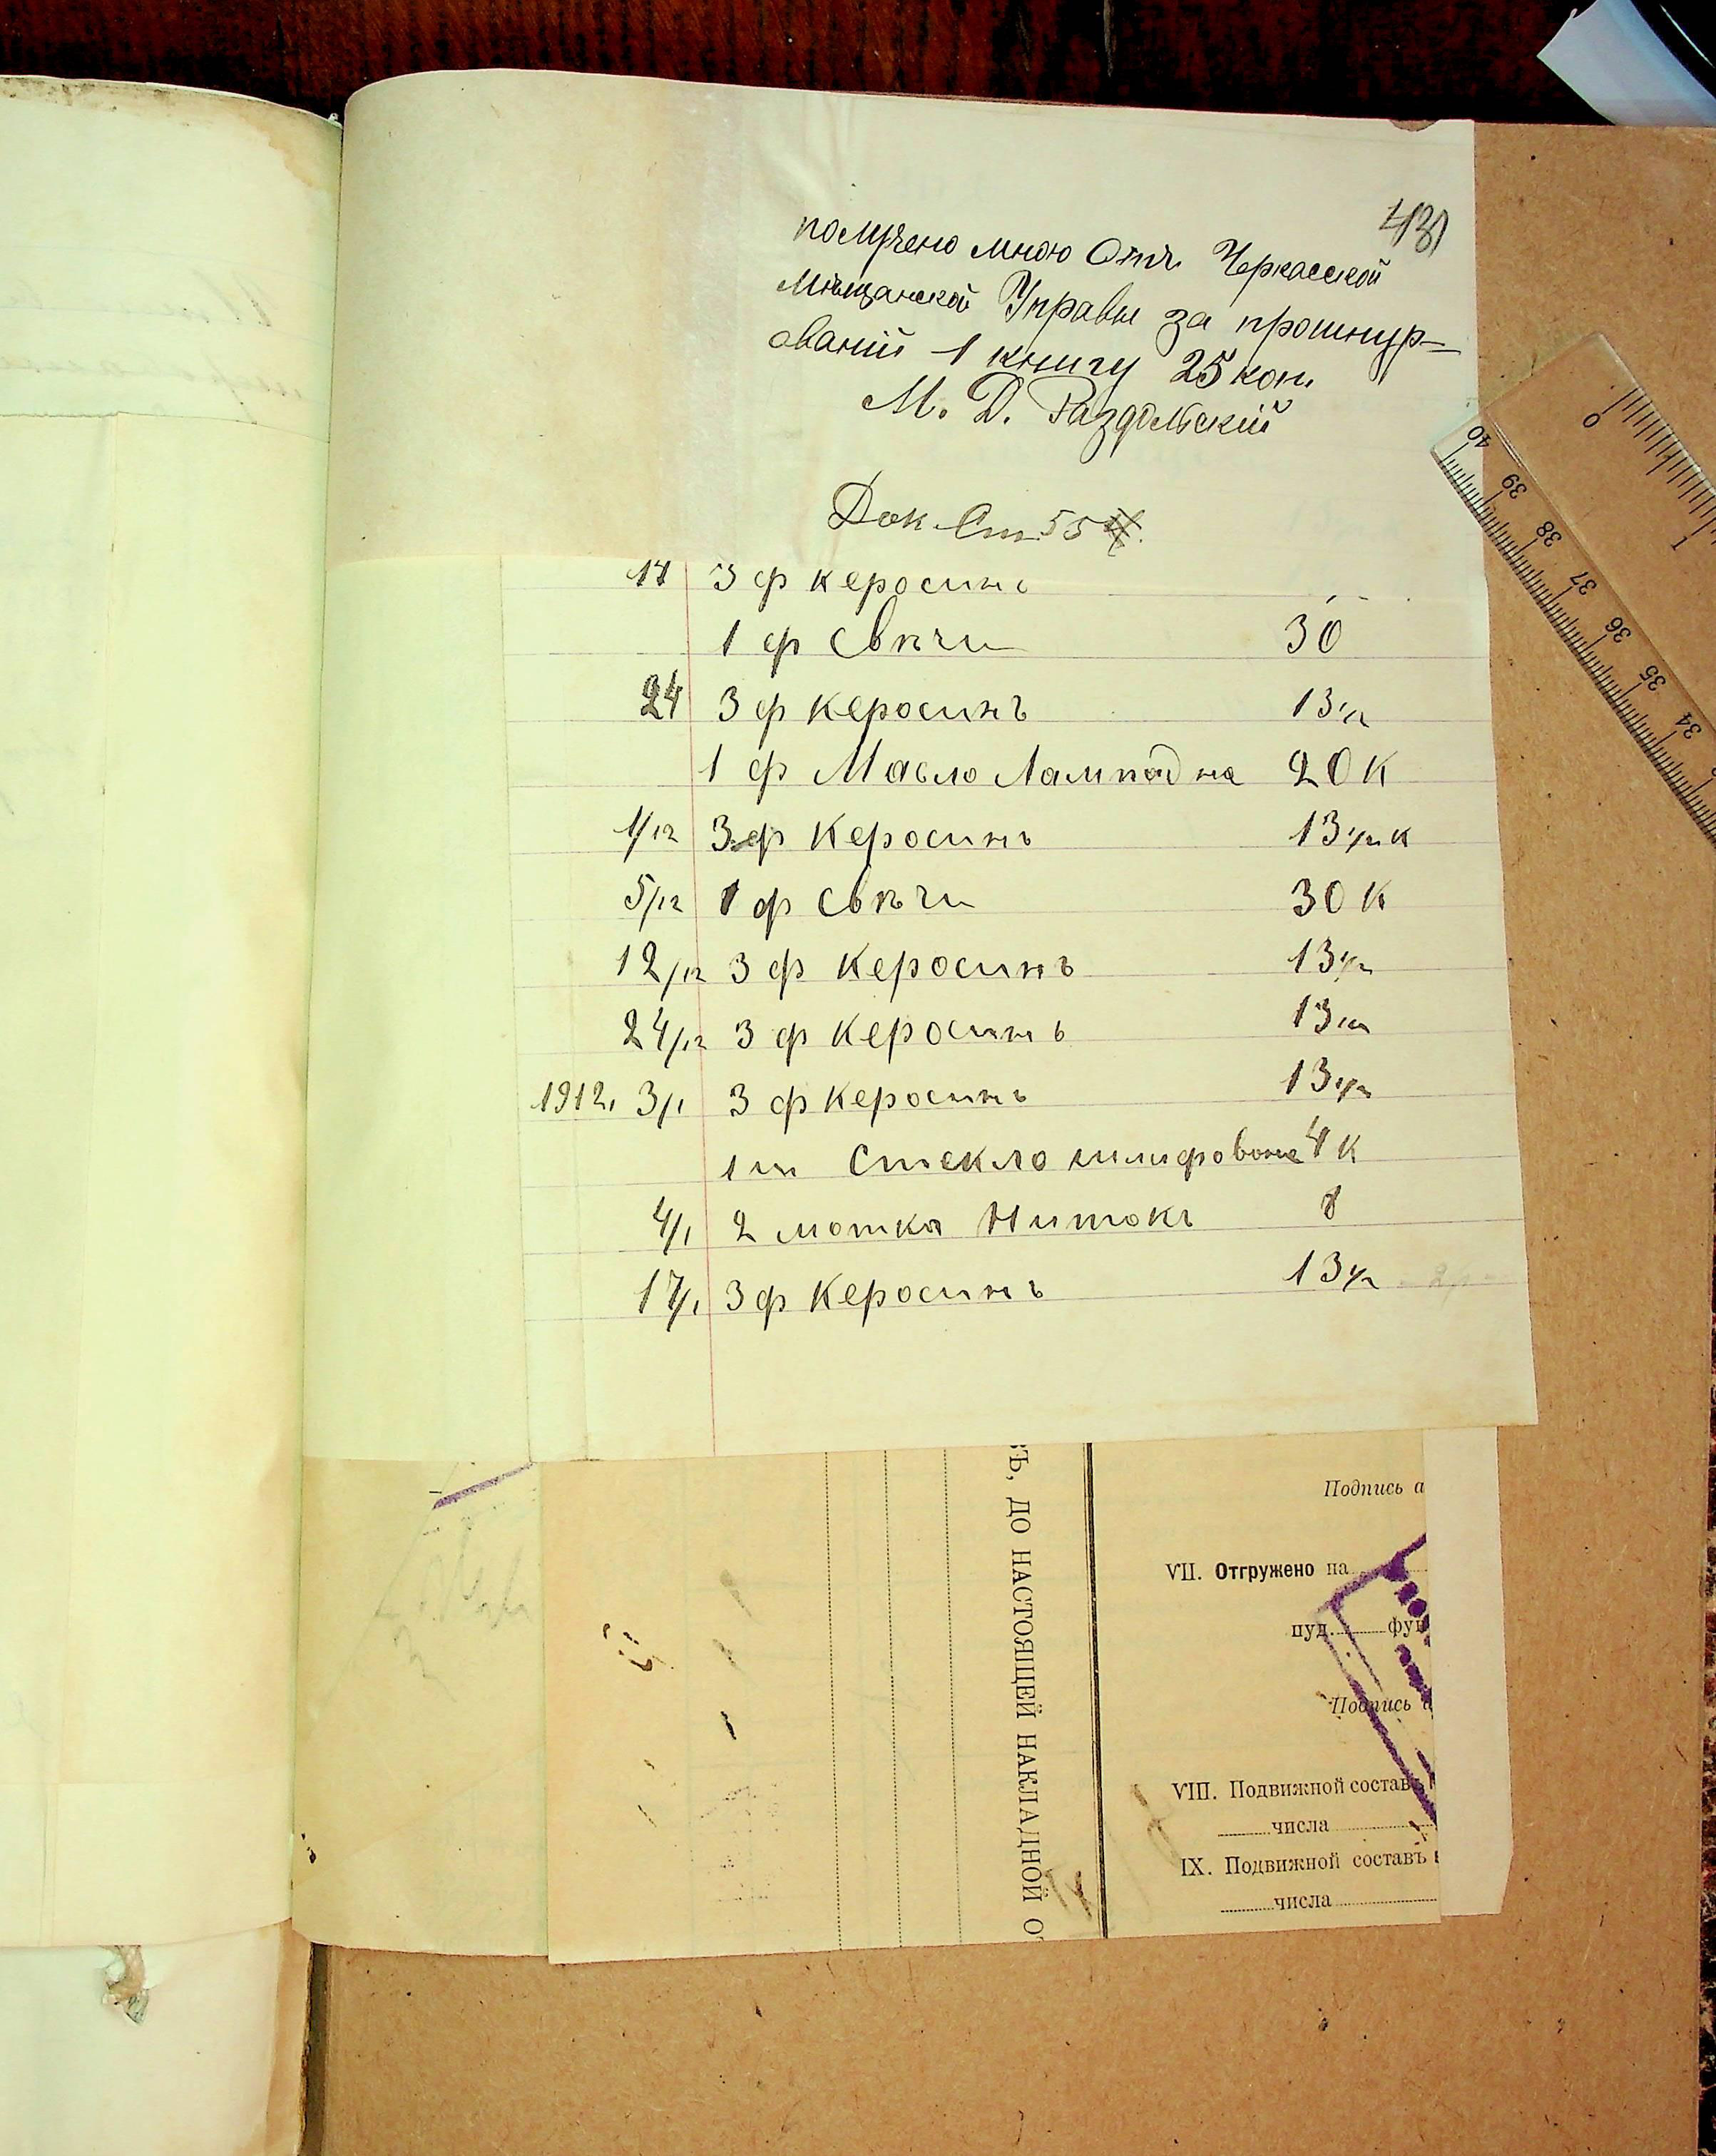 43
получено мною Отъ Черкасской
Мѣщанской Управы за прошнур-
ованій 1 книгу 25 коп.
М. Д. Раздольскій
Док Ст 55
14 3 ф керосинъ
1 ф Свѣчи 30
24 3 ф керосинъ 13 1/2
1 ф Масло Лампадна 20 к
1/12 3 ф Керосинъ 13 1/2 к
5/12 1 ф Свѣчи 30 к
12/12 3 ф Керосинъ 13 1/2
24/12 3 ф Керосинъ 13 1/2
1912. 3/1 3 ф Керосинъ 13 1/2
1 ш Стекло шлифована 4 к
4/1 2 мотка Нитокъ 8
17/1 3 ф Керосинъ 13 1/2
ВЪ, ДО НАСТОЯЩЕЙ НАКЛАДНОЙ О
Подпись а
VII. Отгружено на
пуд. фун
Подпись а
VIII. Подвижной составъ
числа
IX. Подвижной составъ
числа
0
1
40
39
38
37
36
35
34